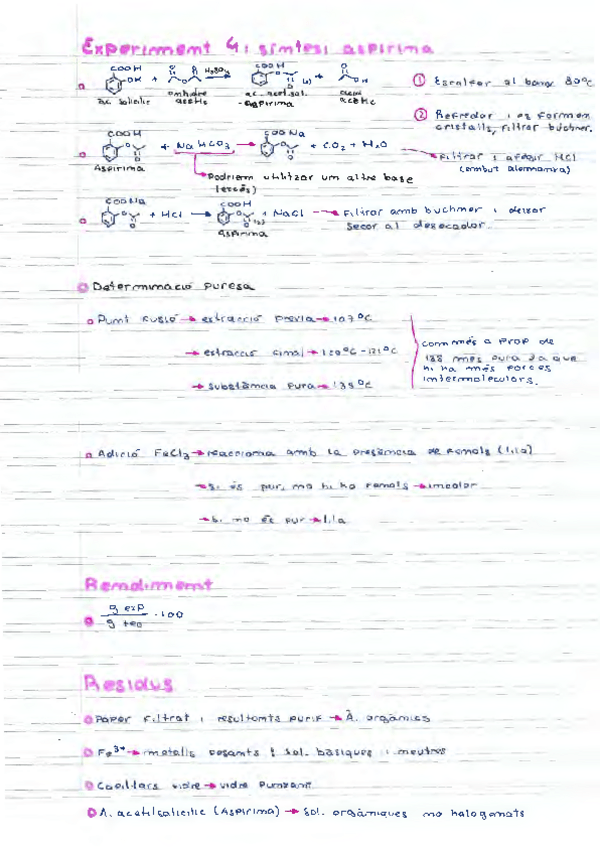 Experiment 4: síntesi aspirina
COOH
OH + H₂SO₄ COOH (s) + OH
àc. salicílic anhídrid acètic àc. acetilsal. - Aspirina àcid acètic
① Escalfar al bany 80ºC
② Refredar i es formen
cristalls, filtrar büchner.
COOH + NaHCO₃ → COONa + CO₂ + H₂O
Aspirina
→ Filtrar i afegir HCl
(embut alemanya)
→ Podriem utilitzar un altre base
COONa + HCl → COOH (s) + NaCl → Filtrar amb buchner i deixar
Aspirina
secar al desecador.
Determinació puresa
Punt fusió → extracció prèvia → 107ºC
→ extracció final → 120ºC - 121ºC
→ substància pura → 135ºC
com més a prop de
135 més pura ja que
hi ha més forces
intermoleculars.
Adició FeCl₃ → reacciona amb la presència de fenols (lila)
→ si és pur, no hi ha fenols → incolor
→ si no és pur → lila
Rendiment
g exp
g teo · 100
Residus
Paper filtrat i resultants purif → À. orgànics
Fe³⁺ → metalls pesants i sol. bàsiques i neutres
Capil·lars vidre → vidre punxant
A. acetilsalicílic (Aspirina) → sol. orgàniques no halogenats